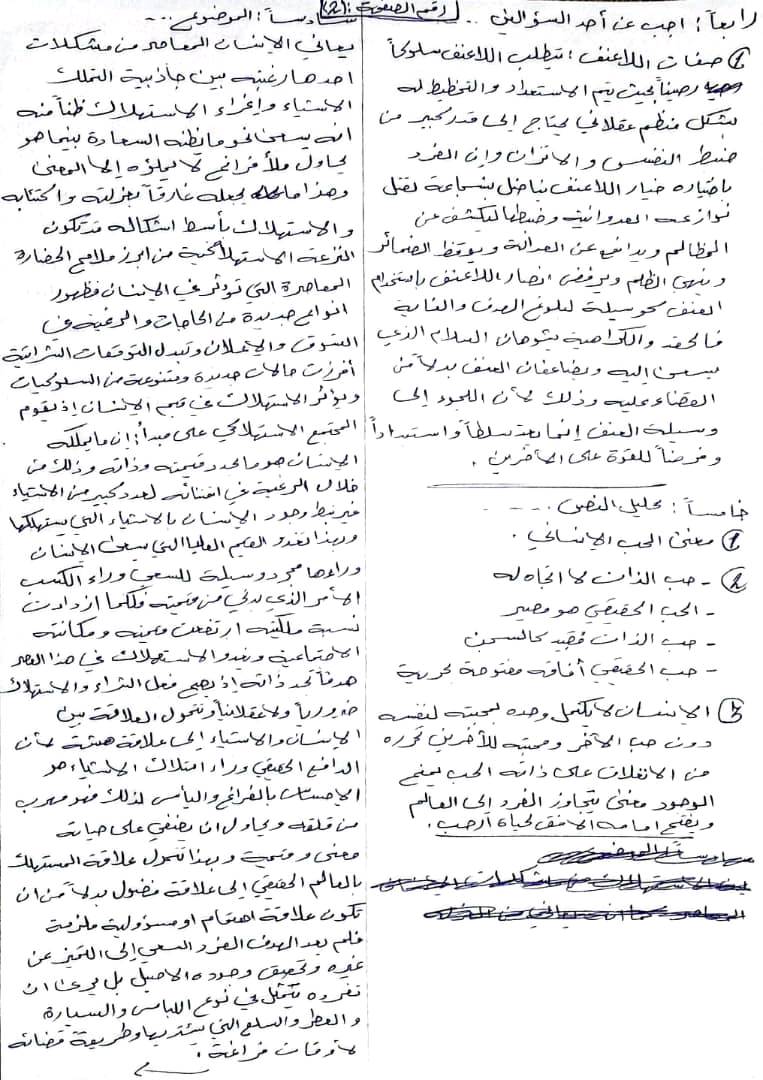 رقم الصفحة: (2)
رابعاً: اجب عن أحد السؤالين ..
① صفات اللاعنف: يتطلب اللاعنف سلوكاً
رصيناً بحيث يتم الاستعداد والتخطيط له
بشكل منظم عقلاني يحتاج إلى قدر كبير من
ضبط النفس والاتزان وإن الفرد
باختياره خيار اللاعنف يناضل بشجاعة لقتل
نوازعه العدوانية وضبطها ليكشف عن
المظالم ويدافع عن العدالة ويوقظ الضمائر
وينهي الظلم ويرفض انصار اللاعنف باستخدام
العنف كوسيلة لبلوغ الهدف والغاية
فالحقد والكراهية يشوهان السلام الذي
يسعى اليه ويضاعفان العنف بدلاً من
القضاء عليه وذلك لأن اللجوء إلى
وسيلة العنف إنما يعد تسلطاً واستبداداً
وفرضاً للقوة على الآخرين.
خامساً: تحليل النص ....
① معنى الحب الإنساني.
② - حب الذات لا اتجاه له
- الحب الحقيقي هو مصير
- حب الذات مقيد كالسجن
- حب الحقيقي آفاقه مفتوحة بحرية
③ الإنسان لا يكتمل وحده بمحبته لنفسه
دون حب الآخر ومحبته للآخرين تحرره
من الانغلاق على ذاته الحب يمنح
الوجود معنى يتجاوز الفرد إلى العالم
ويفتح امامه الافق لحياة أرحب.
سادساً: الموضوع ....
يعاني الإنسان المعاصر من مشكلات
احدها رغبته بين جاذبية التملك
الاشياء وإغراء الاستهلاك ظناً منه
انه يسعى نحو ما يظنه السعادة بينما هو
يحاول ملأ فراغ لا يملؤه إلا المعنى
وهذا ما يجعله غارقاً بعزلته واكتئابه
والاستهلاك بأبسط اشكاله قد تكون
النزعة الاستهلاكية من ابرز ملامح الحضارة
المعاصرة التي تؤثر في الإنسان فظهور
انواع جديدة من الحاجات والرغبة في
التسوق والإعلان وتبدل التوقعات الشرائية
أفرزت حالات جديدة ومتنوعة من السلوكيات
ويؤثر الاستهلاك في قيم الإنسان إذ يقوم
المجتمع الاستهلاكي على مبدأ: إن ما يملكه
الإنسان هو ما يحدد قيمته وذاته وذلك من
خلال الرغبة في اقتنائه لعدد كبير من الاشياء
فيرتبط وجود الإنسان بالاشياء التي يستهلكها
وبهذا تغدو القيم العليا التي يسعى الإنسان
وراءها مجرد وسيلة للسعي وراء الكسب
الأمر الذي يدني من قيمته فكلما ازدادت
نسبة ملكيته ارتفعت قيمته ومكانته
الاجتماعية ويغدو الاستهلاك في هذا العصر
هدفاً بحد ذاته إذ يصبح فعل الشراء والاستهلاك
ضرورياً ولا عقلانياً وتتحول العلاقة بين
الإنسان والاشياء إلى علاقة هشة لأن
الدافع الحقيقي وراء امتلاك الاشياء هو
الإحساس بالفراغ واليأس لذلك فهو مهرب
من قلقه ويحاول ان يضفي على حياته
معنى وقيمة وبهذا تتحول علاقة المستهلك
بالعالم الحقيقي إلى علاقة فضول بدلاً من ان
تكون علاقة اهتمام او مسؤولية ملزمة
فلم يعد الهدف الفرد السعي إلى التميز عن
غيره وتحقيق وجوده الاصيل بل يرى ان
تفرده يتمثل في نوع اللباس والسيارة
والعطر والسلع التي يشتريها وطريقة قضائه
لأوقات فراغه.